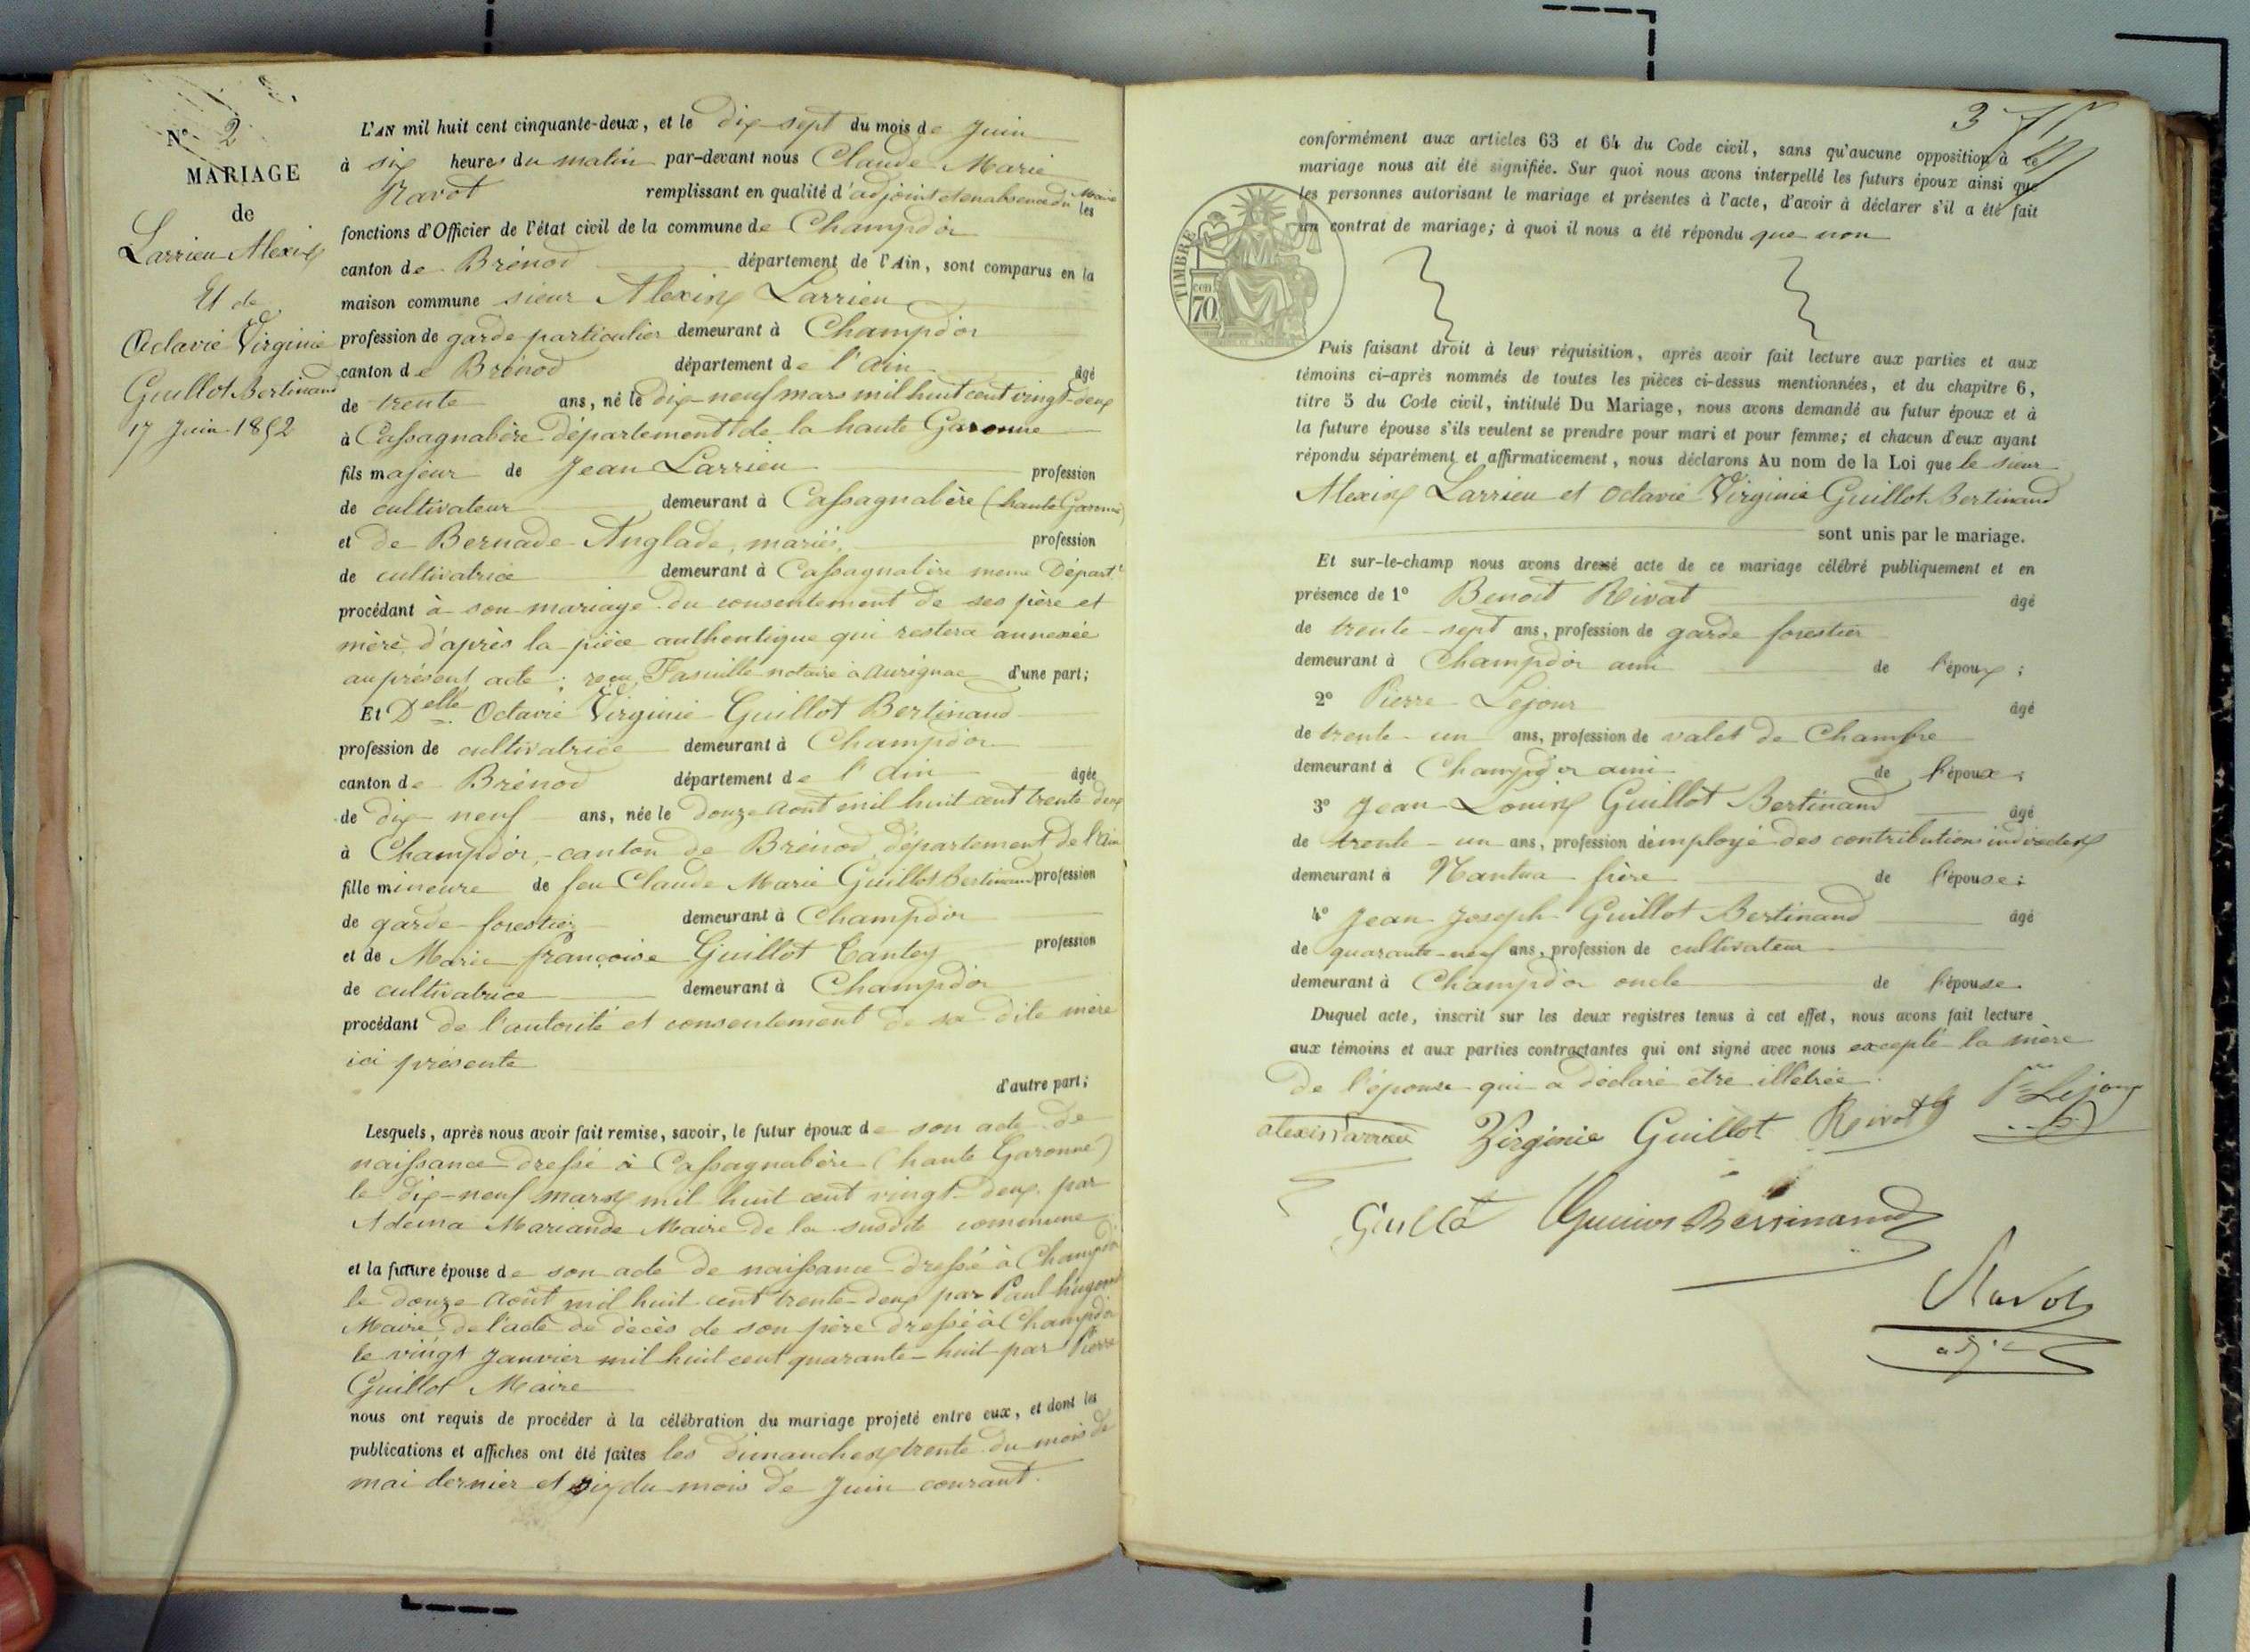 N° 2
MARIAGE
de
Larrieu Alexis
Et de
Octavie Virginie
Guillot Bertinand
17 Juin 1852
L'AN mil huit cent cinquante-deux, et le dix sept du mois de Juin
à six heures du matin par-devant nous Claude Marie
Ravot remplissant en qualité d'adjoint et en absence du Maire les
fonctions d'Officier de l'état civil de la commune de Champdor
canton de Brénod département de l'Ain, sont comparus en la
maison commune sieur Alexis Larrieu
profession de garde particulier demeurant à Champdor
canton de Brénod département de l'Ain âgé
de trente ans, né le dix-neuf mars mil huit cent vingt-deux
à Cassagnabère département de la haute Garonne
fils majeur de Jean Larrieu profession
de cultivateur demeurant à Cassagnabère (haute Garonne)
et de Bernade Anglade, mariés, profession
de cultivatrice demeurant à Cassagnabère meme Départ.t
procédant à son mariage du consentement de ses père et
mère, d'après la pièce authentique qui restera annexée
au présent acte ; reçu notaire à Aurignac d'une part;
Et Delle Octavie Virginie Guillot Bertinand
profession de cultivatrice demeurant à Champdor
canton de Brénod département de l'Ain âgée
de dix neuf ans, née le douze Août mil huit cent trente deux
à Champdor, canton de Brénod, département de l'Ain
fille mineure de feu Claude Marie Guillot Bertinand profession
de garde forestier demeurant à Champdor
et de Marie françoise Guillot Tantey profession
de cultivatrice demeurant à Champdor
procédant de l'autorité et consentement de sa dite mère
ici présente
d'autre part;
Lesquels, après nous avoir fait remise, savoir, le futur époux de son acte de
naissance dressé à Cassagnabère (haute Garonne)
le dix-neuf mars mil huit cent vingt-deux par
Adema Mariande Maire de la susdite commune
et la future épouse de son acte de naissance dressé à Champdor
le douze Août mil huit cent trente-deux par Paul hugonnet
Maire, de l'acte de décès de son père dressé à Champdor
le vingt Janvier mil huit cent quarante-huit par Pierre
Guillot Maire
nous ont requis de procéder à la célébration du mariage projeté entre eux, et dont les
publications et affiches ont été faites les dimanches trente du mois de
mai dernier et six du mois de Juin courant.
3
conformément aux articles 63 et 64 du Code civil, sans qu'aucune opposition à ce
mariage nous ait été signifiée. Sur quoi nous avons interpellé les futurs époux ainsi que
les personnes autorisant le mariage et présentes à l'acte, d'avoir à déclarer s'il a été fait
un contrat de mariage; à quoi il nous a été répondu que non
TIMBRE
70 cen
Puis faisant droit à leur réquisition, après avoir fait lecture aux parties et aux
témoins ci-après nommés de toutes les pièces ci-dessus mentionnées, et du chapitre 6,
titre 5 du Code civil, intitulé Du Mariage, nous avons demandé au futur époux et à
la future épouse s'ils veulent se prendre pour mari et pour femme; et chacun d'eux ayant
répondu séparément et affirmativement, nous déclarons Au nom de la Loi que le sieur
Alexis Larrieu et Octavie Virginie Guillot Bertinand
sont unis par le mariage.
Et sur-le-champ nous avons dressé acte de ce mariage célébré publiquement et en
présence de 1° Benoit Rivat âgé
de trente-sept ans, profession de garde forestier
demeurant à Champdor ami de l'époux;
2° Pierre Lejour âgé
de trente-un ans, profession de valet de Chambre
demeurant à Champdor ami de l'époux;
3° Jean Louis Guillot Bertinand âgé
de trente-un ans, profession d'employé des contributions indirectes
demeurant à Nantua frère de l'épouse;
4° Jean Joseph Guillot Bertinand âgé
de quarante-neuf ans, profession de cultivateur
demeurant à Champdor oncle de l'épouse
Duquel acte, inscrit sur les deux registres tenus à cet effet, nous avons fait lecture
aux témoins et aux parties contractantes qui ont signé avec nous excepté la mère
de l'épouse qui a déclaré être illétrée.
alexis larrieu Virginie Guillot Rivat Pre Lejour
Guillot Guillot Bertinand
Ravot
adj.t